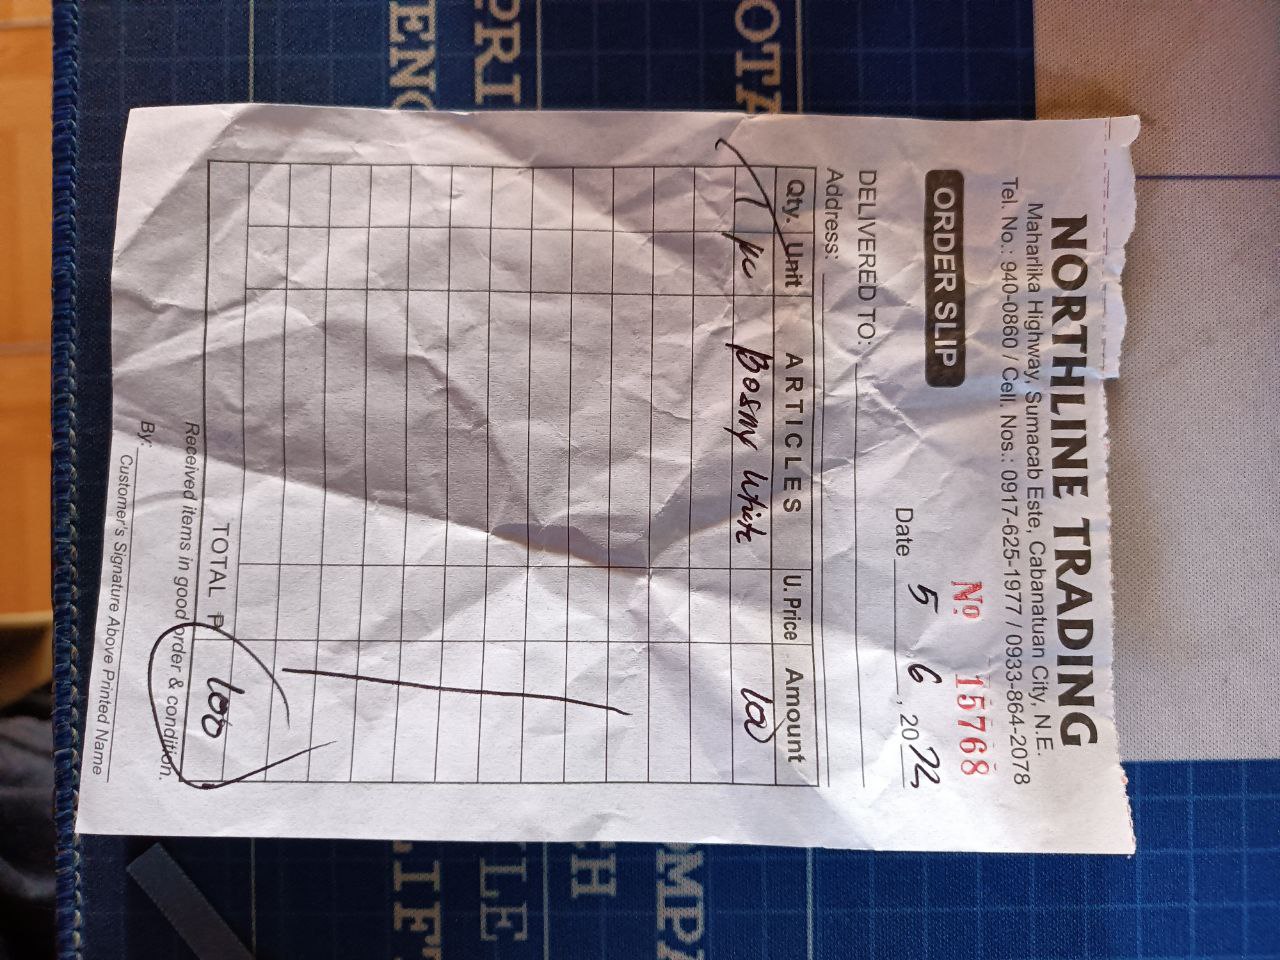 NORTHLINE TRADING
Maharlika Highway, Sumacab Este, Cabanatuan City, N.E.
Tel. No.: 940-0860 / Cell. Nos.: 0917-625-1977 / 0933-864-2078
ORDER SLIP
Nº 15768
Date 5 6, 2022
DELIVERED TO:
Address:
Qty. Unit ARTICLES U. Price Amount
1 pc Bosny White 100
TOTAL ₱ 100
Received items in good order & condition.
By:
Customer's Signature Above Printed Name